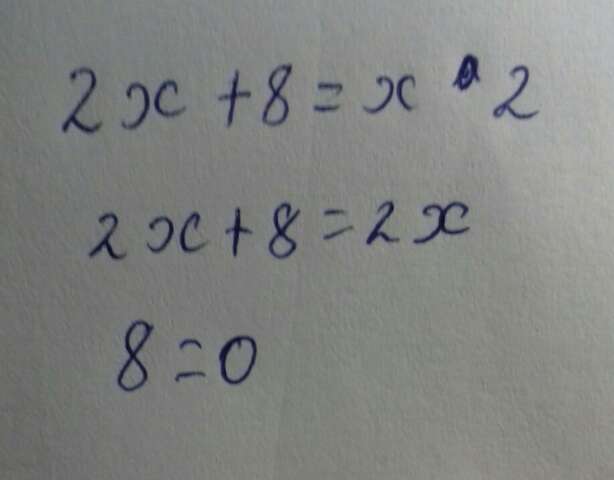 2x + 8 = x · 2
2x + 8 = 2x
8 = 0